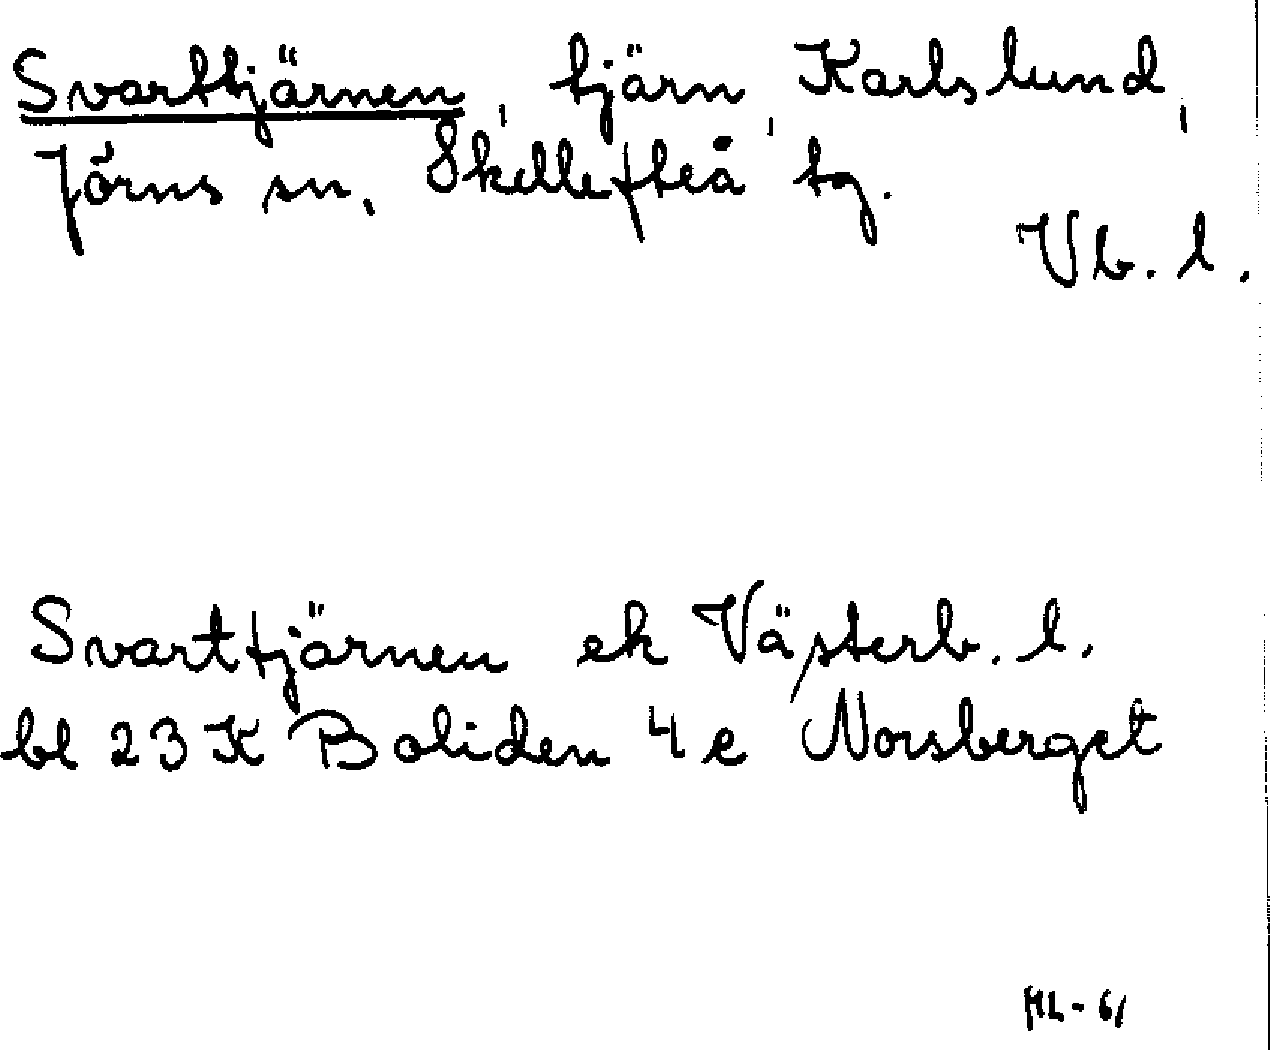 Svarttjärnen, tjärn, Karlslund,
Jörns sn, Skellefteå tg.
Vb. l.
Svarttjärnen ek Västerb. l.
bl 23 K Boliden 4 e Norsberget
ML-61